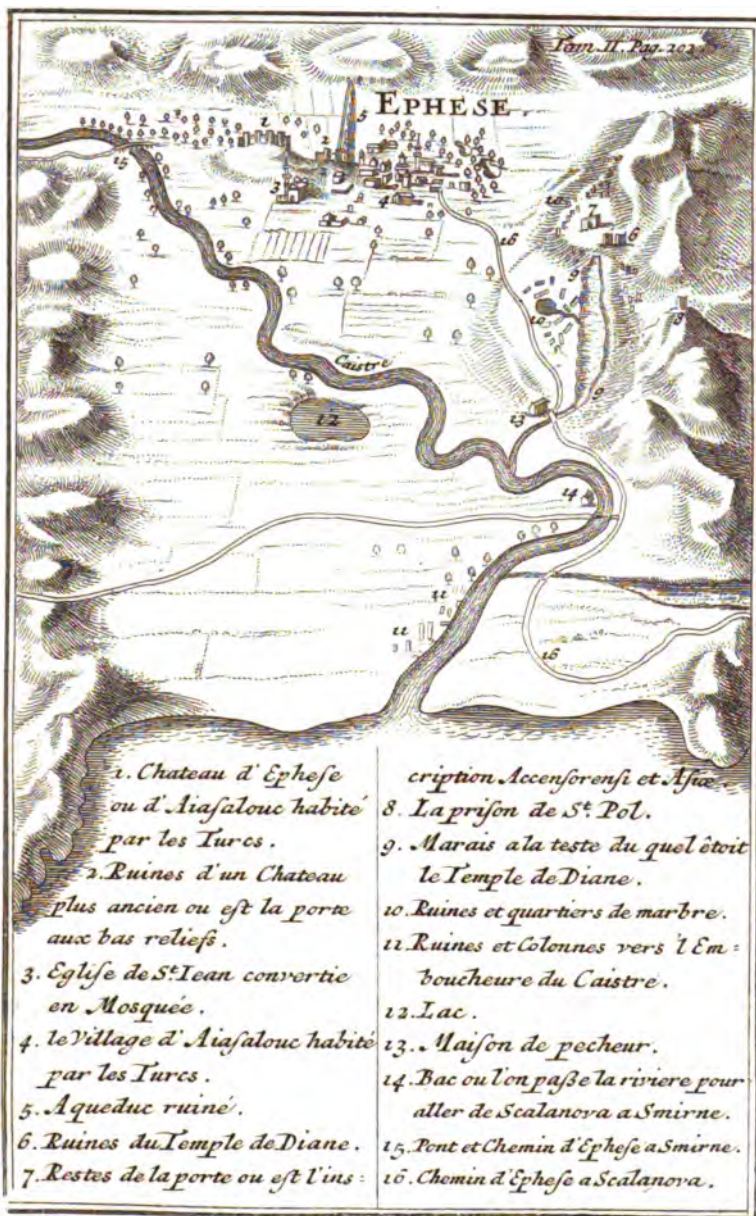 Tom. II. Pag. 202.
EPHESE.
1
5
2
15
3
4
16
10
7
6
9
8
10
Caistre
12
13
9
14
11
11
16
1. Chateau d'Ephese
ou d'Aiasalouc habité
par les Turcs.
2. Ruines d'un Chateau
plus ancien ou est la porte
aux bas reliefs.
3. Eglise de St. Iean convertie
en Mosquée.
4. le Village d'Aiasalouc habité
par les Turcs.
5. Aqueduc ruiné.
6. Ruines du Temple de Diane.
7. Restes de la porte ou est l'ins=
cription Accensorensi et Asiæ.
8. La prison de St. Pol.
9. Marais a la teste du quel êtoit
le Temple de Diane.
10. Ruines et quartiers de marbre.
11. Ruines et Colonnes vers l'Em=
boucheure du Caistre.
12. Lac.
13. Maison de pecheur.
14. Bac ou l'on paße la riviere pour
aller de Scalanova a Smirne.
15. Pont et Chemin d'Ephese a Smirne.
16. Chemin d'Ephese a Scalanova.